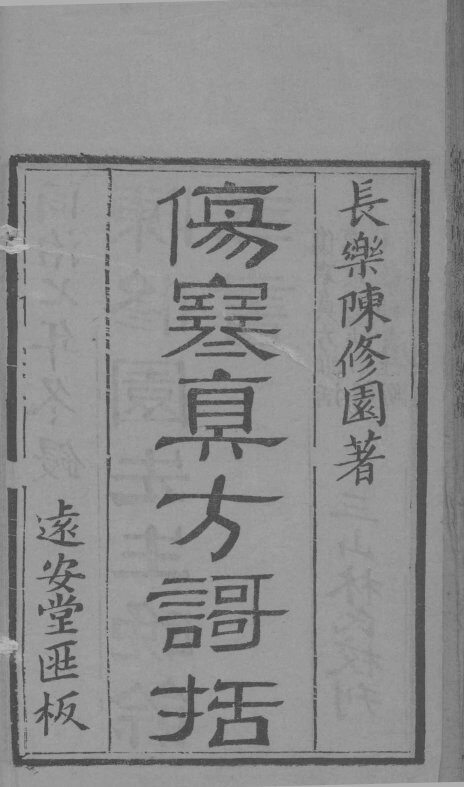 長樂陳修園著
傷寒真方謌括
遠安堂匪板